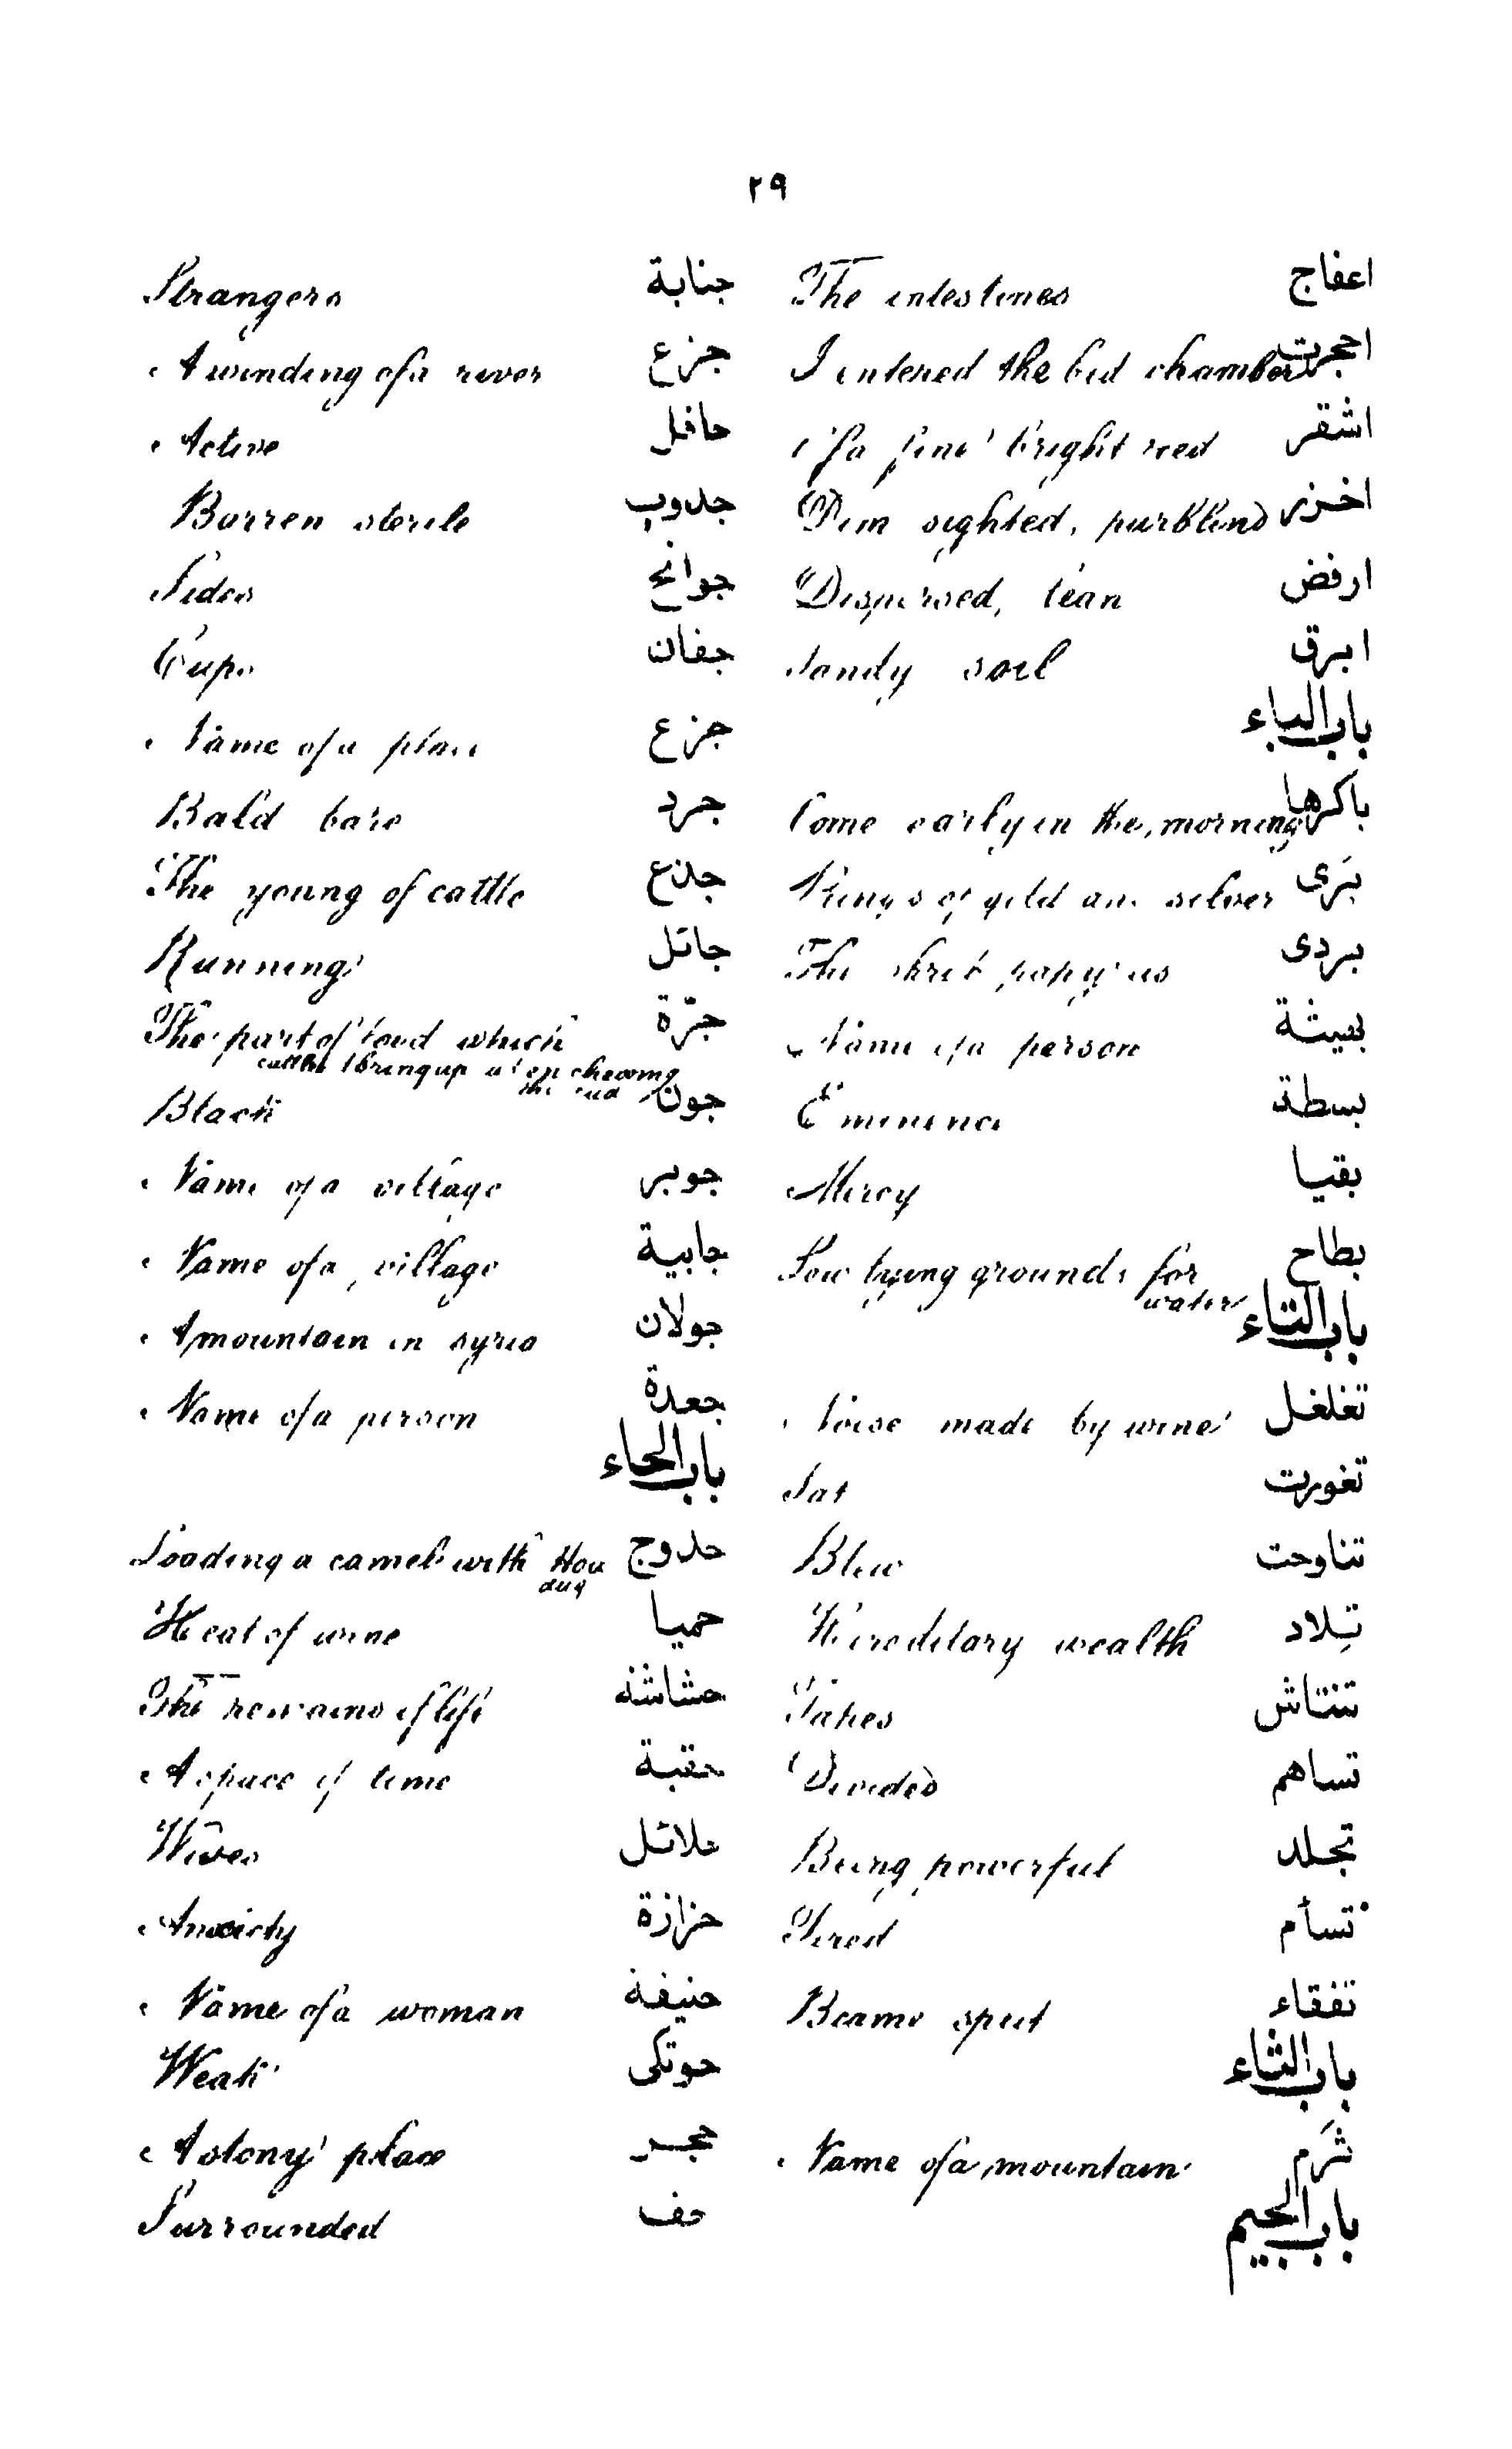 ٢٩
اعفاج The intestines
احجرت I entered the bed chamber
اشقر Of a fine bright red
اخزر Dim sighted, purblind
ارفض Dispersed, tean
ابرق Sandy soil
باب الباء
باكرها Come early in the morning
بَرى Rings of gold and silver
بردى The shrub papyrus
بعيثة Name of a person
بسطة Eminence
بقيا Mercy
بطاح Low lying grounds for
water
باب التاء
تغلغل Noise made by wine
تغورت Sat
تناوحت Blew
تِلاد Hereditary wealth
تنتاش Takes
تساهم Divided
تجلد Being powerful
تسأم Tired
تفقاء Became split
باب الثاء
ثَرم Name of a mountain
باب الجيم
جنابة Strangers
جزع A winding of a river
حافل Active
جدوب Barren sterile
جوانح Sides
جفان Cups
جزع Name of a place
جرد Bald bare
جذع The young of cattle
جائل Running
جرّة The part of food which
cattle bring up when chewing
the cud
جون Black
جوبر Name of a village
جابية Name of a village
جولان A mountain in syria
جعدة Name of a person
باب الحاء
حدوج Loading a camel with How
dug
حميا Heat of wine
حشاشة The remains of life
حقبة A space of time
حلائل Wives
حزازة Anxiety
حنيفة Name of a woman
حوتكى Weak
حجر A stony place
حف Surrounded